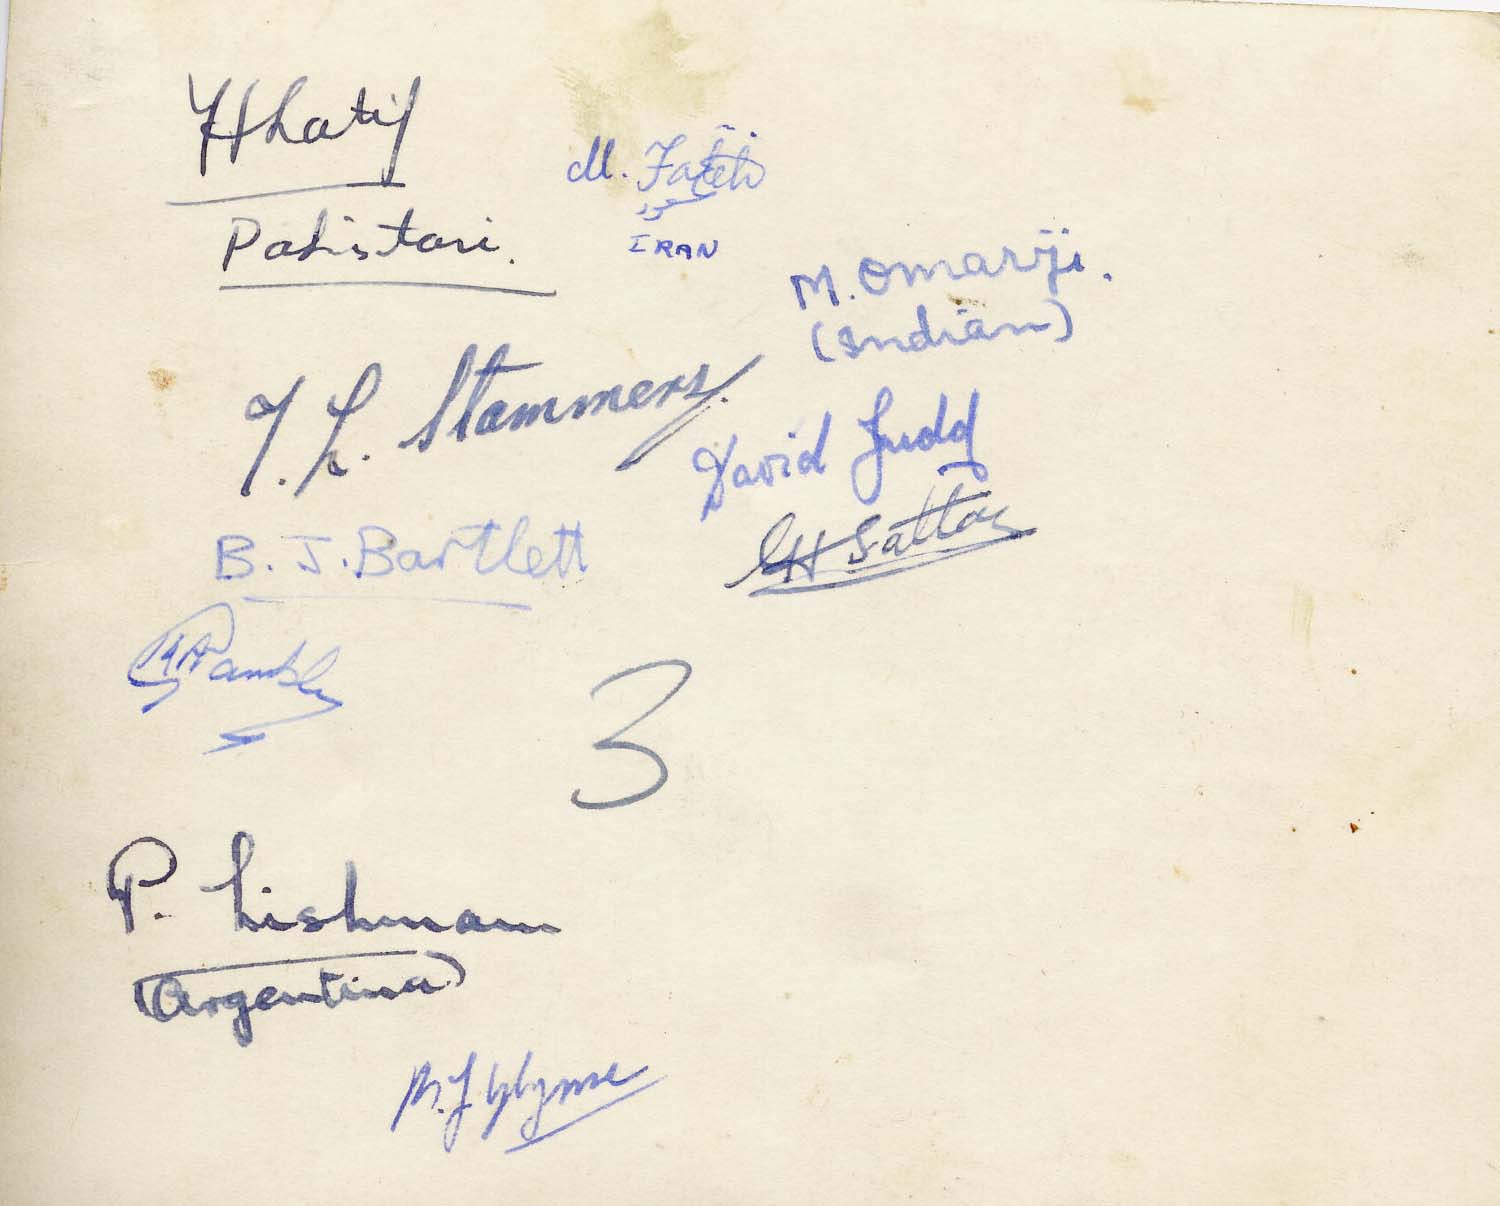 Khatif
Pakistan.
M. Fateh
مسعود
IRAN
M. Omarji.
(Indian)
T. L. Stammers.
David Judd
B. J. Bartlett
Sattar
3
P. Lishman
(Argentina)